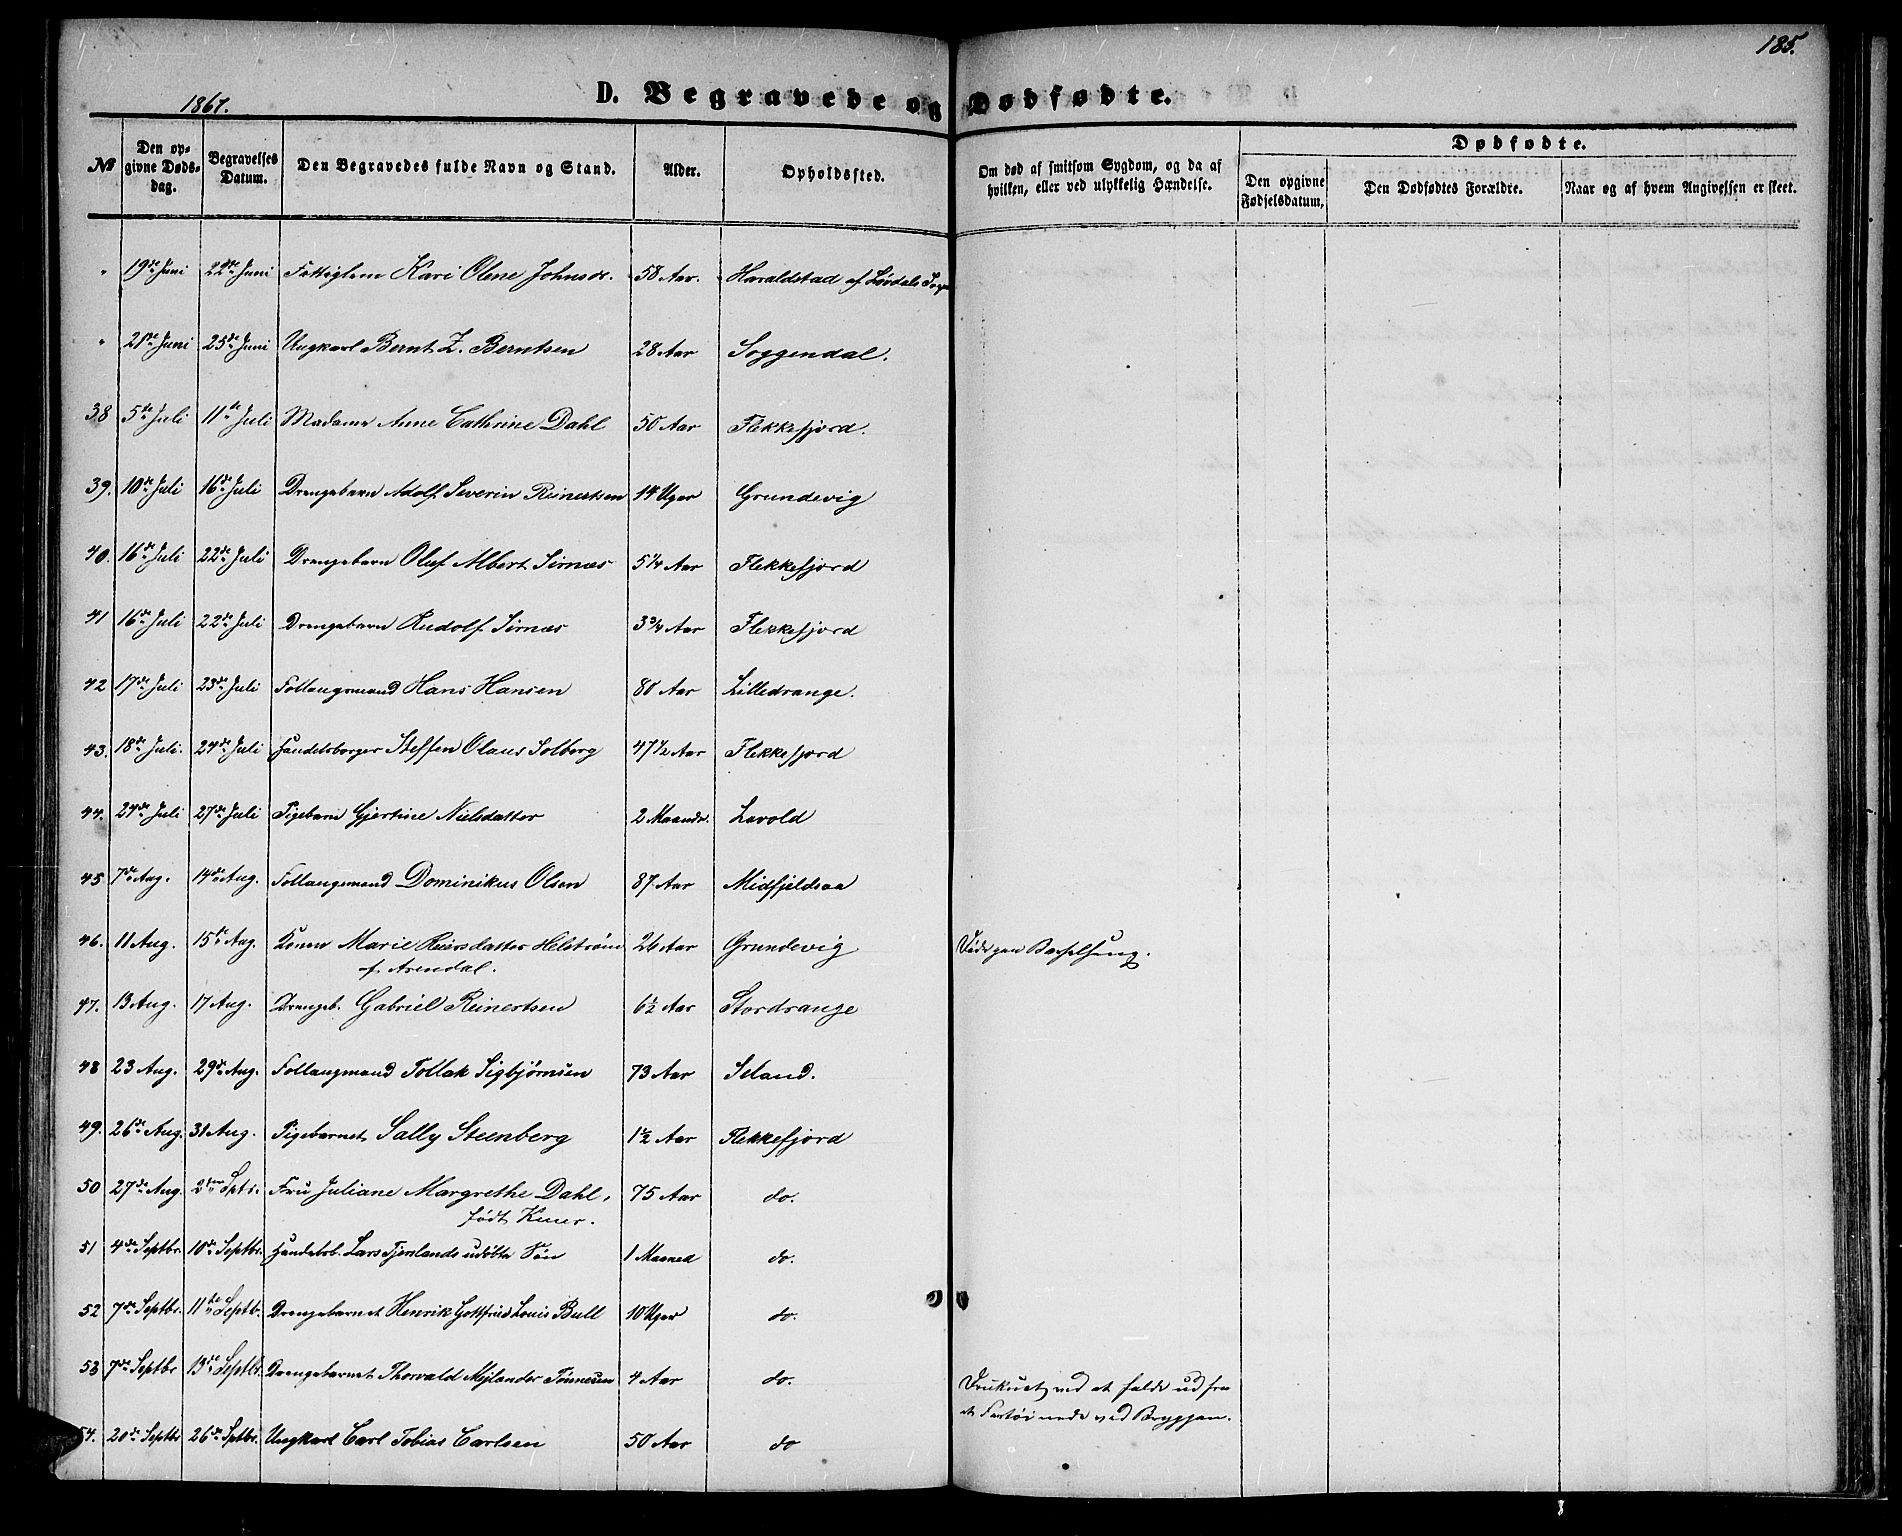 185.
1867.
D. Begravede og Dødfødte.
№
Den opgivne Dødsdag.
Begravelses Datum.
Den Begravedes fulde Navn og Stand.
Alder.
Opholdssted.
Om død af smitsom Sygdom, og da af hvilken, eller ved ulykkelig Hændelse.
Dødfødte.
Den opgivne Fødselsdatum.
Den Dødfødtes Forældre.
Naar og af hvem Angivelsen er skeet.
" 19de Juni 22de Juni Fattiglem Kari Olene Johnsdr. 58 Aar. Haraldstad af Lørdals Sogn
" 21de Juni 25de Juni Ungkarl Bernt Z. Berntsen 28 Aar Soggendal.
38 5te Juli 11te Juli Madame Anne Cathrine Dahl 50 Aar Flekkefjord.
39. 10de Juli 16de Juli Drengebarn Adolf Severin Reinertsen 14 Uger Grundevig
40. 16de Juli 22de Juli Drengebarn Oluf Albert Sirnæs 5 1/4 Aar Flekkefjord
41 16de Juli 22de Juli Drengebarn Rudolf Sirnæs 3 3/4 Aar Flekkefjord
42 17de Juli 23de Juli Follaugsmand Hans Hansen 80 Aar Lilledrange.
43. 18de Juli. 24de Juli Handelsborger Steffen Olaus Solberg 47 1/2 Aar Flekkefjord
44. 24de Juli 27de Juli Pigebarn Gjertine Nielsdatter 2 Maander. Lavold
45 7de Aug. 14de Aug. Follaugsmand Dominikus Olsen 87 Aar Midfjeldsaa
46. 11 Aug. 15de Aug. Konen Marie Reiersdatter Helstrøm 26 Aar Grundevig Døde paa Barselseng.
af Arendal.
47. 13 Aug. 17 Aug. Drengeb. Gabriel Reinertsen 6 1/2 Aar Stordrange
48 23 Aug. 29de Aug. Follaugmand Tollak Sigbjørnsen 73 Aar Seland.
49. 26de Aug. 31 Aug. Pigebarnet Sally Steenberg 1 1/2 Aar Flekkefjord
50 27de Aug. 2den Sept. Fru Juliane Margrethe Dahl, 75 Aar do.
født
51 4de Septbr. 10de Septbr. Handelsb. Lars Tjerslands udøbte Søn 1 Maaned do.
52 7de Septbr. 11te Septbr. Drengebarnet Henrik Gottfried Louis Bull 10 Uger do.
53 7de Septbr 13de Septbr. Drengebarnet Thorvald Mejlander Tønnesen 4 Aar do. Druknet ved at falde ud fra
et Fartøi nede ved Bryggen.
54. 20de Septbr 26de Sptbr. Ungkarl Carl Tobias Carlsen 50 Aar do